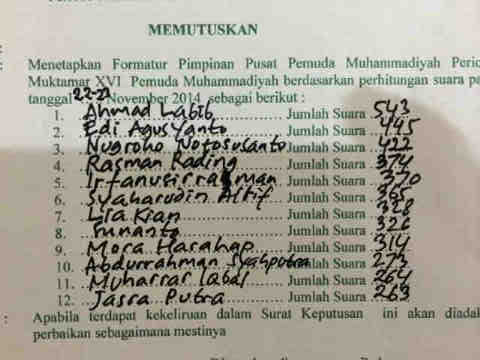 MEMUTUSKAN
:
: Menetapkan Formatur Pimpinan Pusat Pemuda Muhammadiyah
Muktamar XVI Pemuda Muhammadiyah berdasarkan perhitungan suara
tanggal 22-23 November 2014 sebagai berikut :
1. Ahmad Labib Jumlah Suara 543
2. Edi Agusyanto Jumlah Suara 445
3. Nugroho Notosusanto Jumlah Suara 422
4. Rasman Rading Jumlah Suara 374
5. Jumlah Suara 370
6. Syaharudin Jumlah Suara
7. Lira Kian Jumlah Suara 328
8. Sunanto Jumlah Suara 326
9. Mora Harahap Jumlah Suara 314
10. Abdurrahman Syahputra Jumlah Suara 273
11. Muharrar Iqbal Jumlah Suara 264
12. Jasra Putra Jumlah Suara 263
: Apabila terdapat kekeliruan dalam Surat Keputusan ini akan
perbaikan sebagaimana mestinya